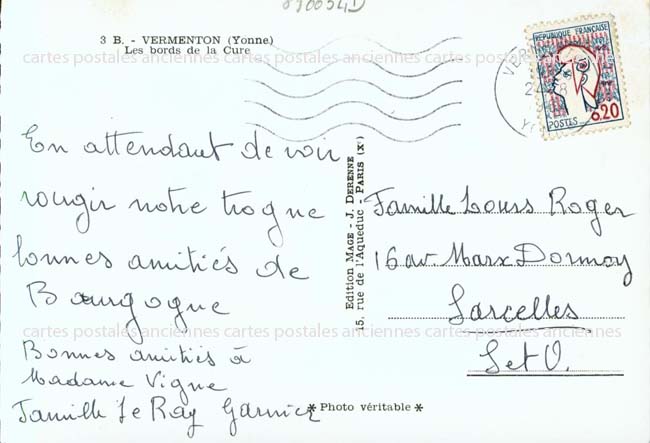 890034D
3 B. - VERMENTON (Yonne)
Les bords de la Cure
cartes postales anciennes cartes postales anciennes cartes postales anciennes
REPUBLIQUE FRANÇAISE
0,20
POSTES
En attendant de voir
rougir notre trogne
bonnes amitiés de
Bourgogne
Bonnes amitiés à
Madame Vigne
Famille Le Ray Garnier
Edition MAGE - J. DERENNE
15, rue de l'Aqueduc - PARIS (Xᵉ)
Famille Louis Roger
16 av Marx Dormoy
Sarcelles
S et O.
cartes postales anciennes cartes postales anciennes cartes postales anciennes
* Photo véritable *